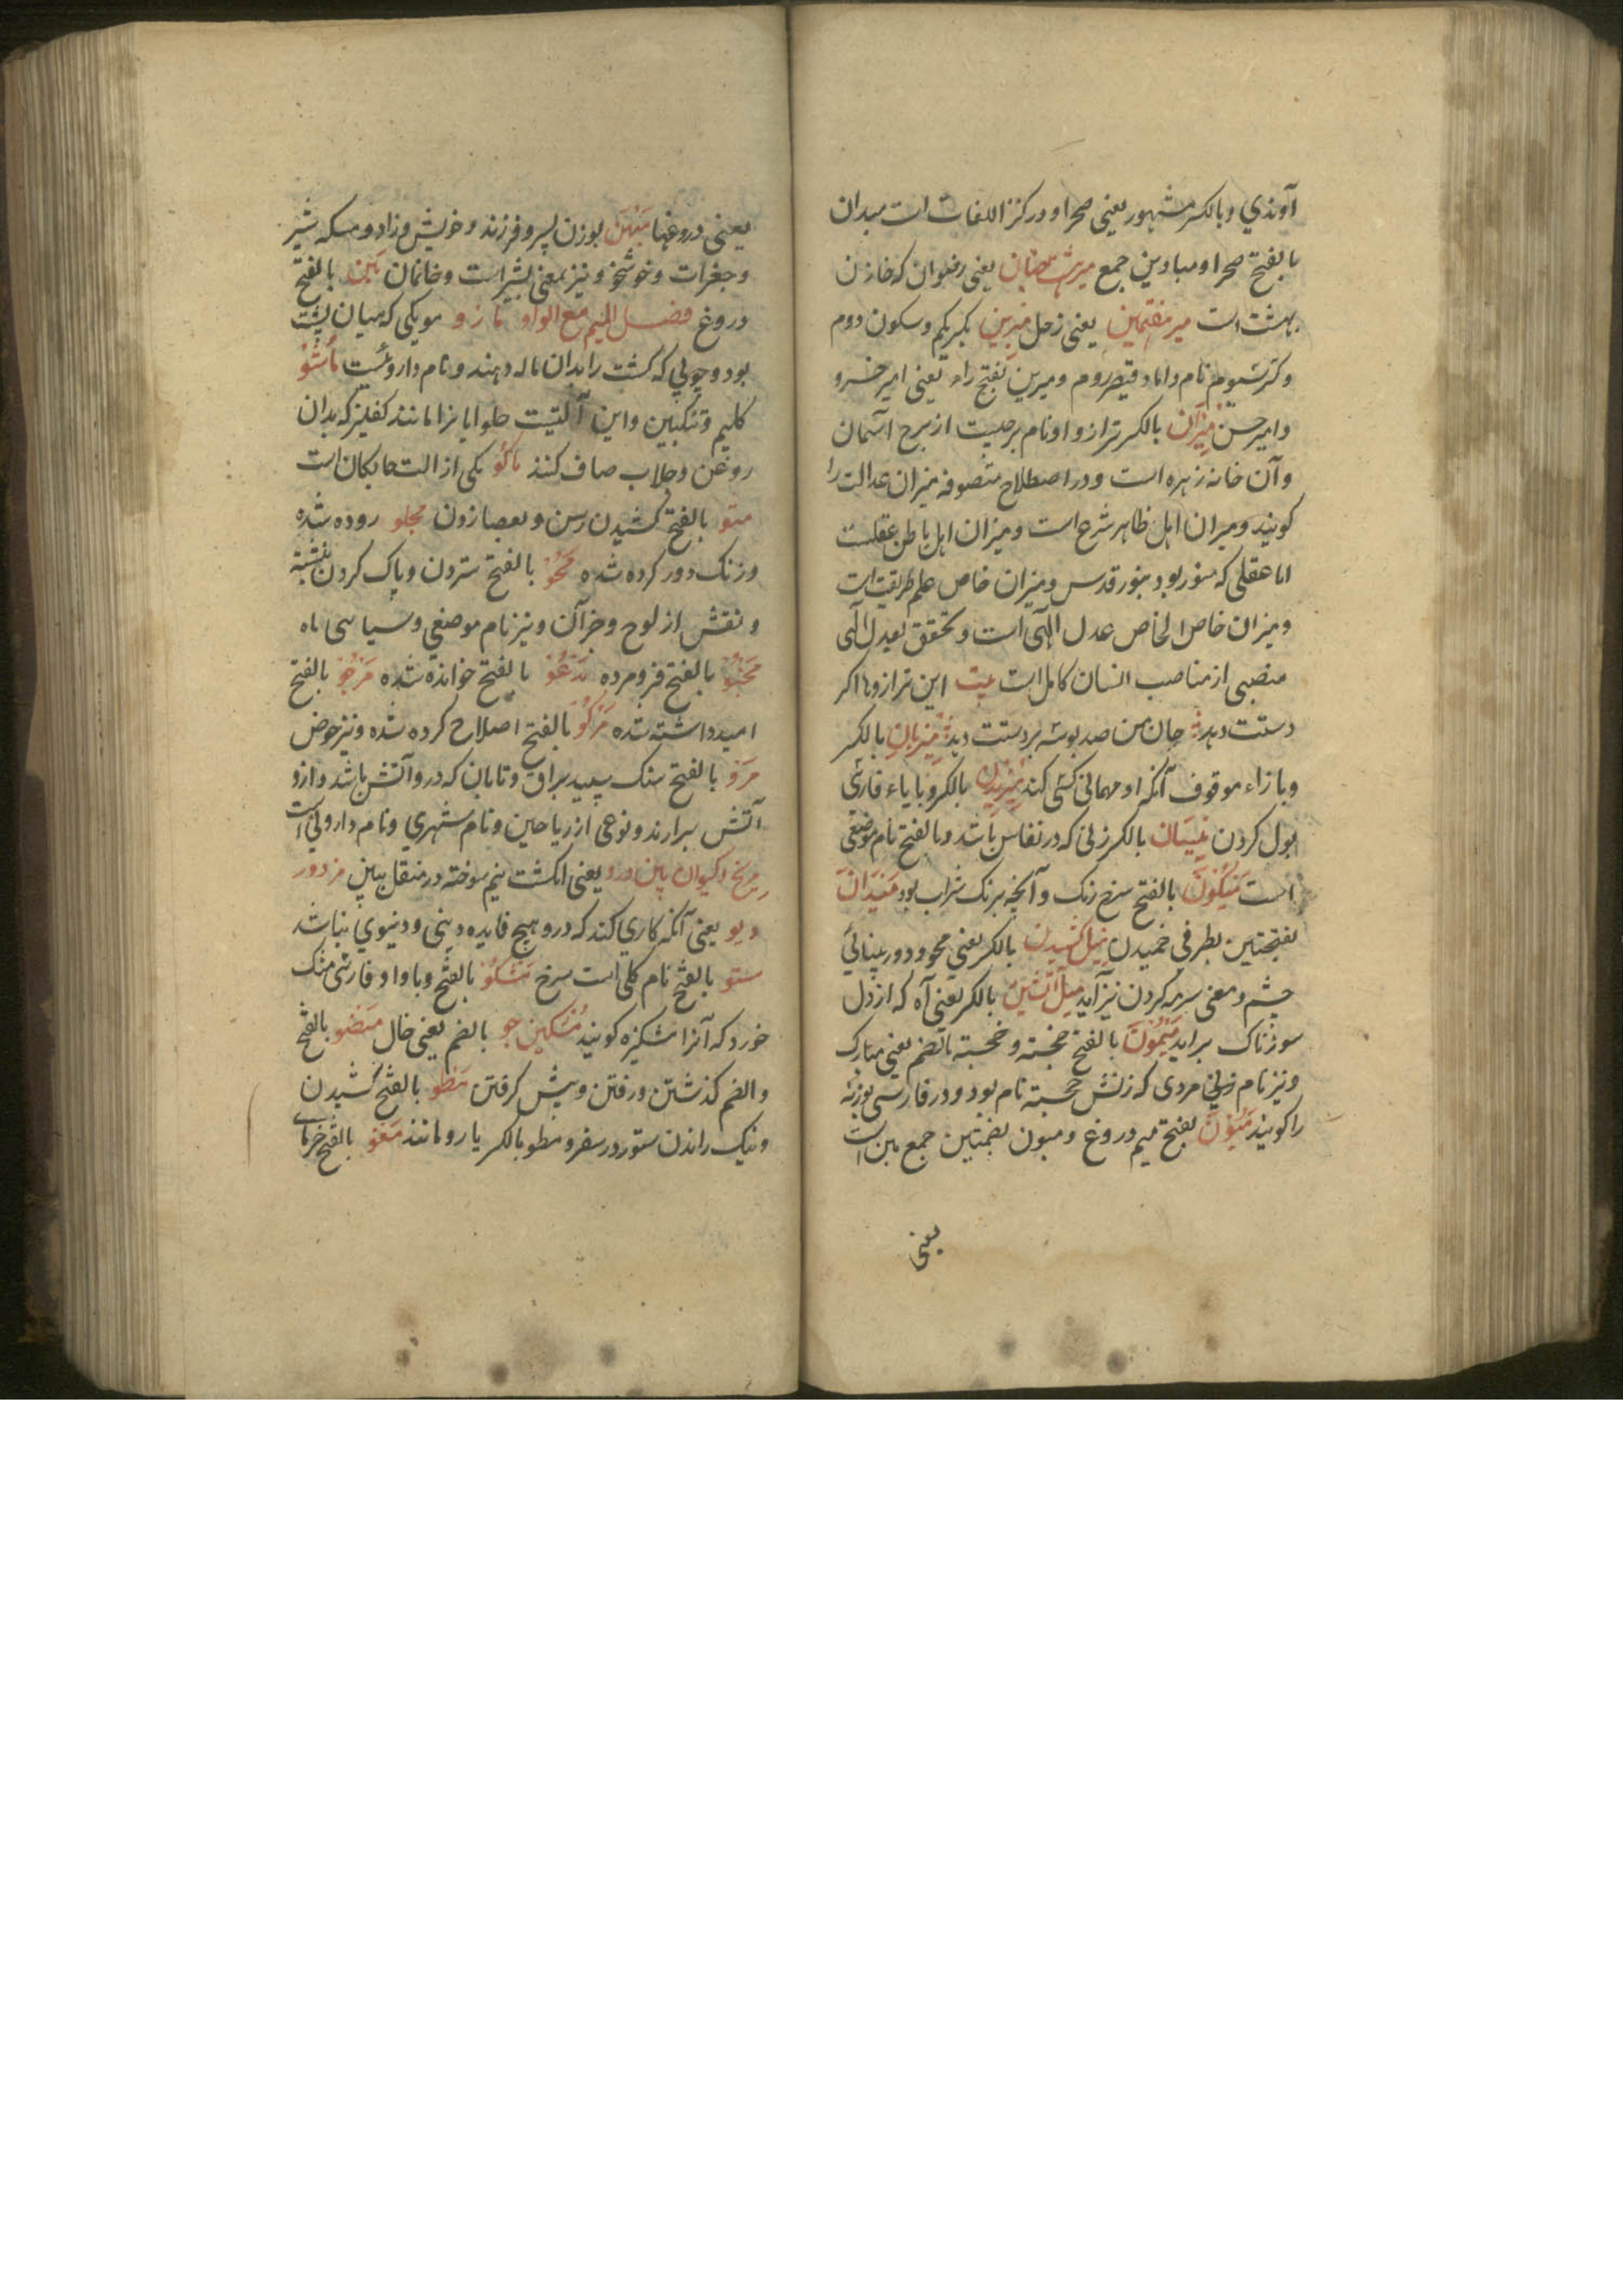 آوندي و بالکسر مشهور یعنی صحرا و در کنز اللغات است میدان
بالفتح صحرا و میادین جمع میرشتجنان یعنی رضوان که خازن
بهشت است میر مفتمین یعنی زحل میرین بکسر یکم و سکون دوم
و کسر سیوم نام داماد قیصر روم و میرین بفتح راء یعنی امیر خسرو
و امیر حسن میزان بالکسر ترازو و نام برجیست از برج آسمان
و آن خانه زهره است و در اصطلاح متصوفه میزان عدالت را
کویند و میزان اهل ظاهر شرع است و میزان اهل باطن عقلست
اما عقلی که منور بود بنور قدس و میزان خاص علم طریقت است
و میزان خاص الخاص عدل الهی است و تحقق بعدل الهی
منصبی از مناصب انسان کامل است بیت این ترازوها اکر
دستت دهد جان من صد بوسه بر دستت دهد میزبان بالکسر
و با زاء موقوف آنکه او مهمانی کسی کند میزیدن بالکسر و با یاء فارسی
بول کردن میسان بالکسر زنی که در نفاس باشد و بالفتح نام موضعی
است میکون بالفتح سرخ رنک و آنچه برنک شراب بود میدان
بفتحتین بطرفی خمیدن میل کشیدن بالکسر یعنی محو و دور بینائی
چشم و معنی سرمه کردن نیز آید میل آتشین بالکسر یعنی آه که از دل
سوزناک براید میمون بالفتح خجسته و خجسته بالضم یعنی مبارک
و نیز نام زنی مردی که زنش خجسته نام بود و در فارسی بوزنه
را کویند میون بفتح میم دروغ و میون بضمتین جمع مین است
یعنی
یعنی دروغها بوزن پسر و فرزند و خویش و زاد و مسکه شیر
و جغرات و خوشخو و نیز بمعنی شیر است و خانمان مین بالفتح
دروغ فصل المیم مع الواو مازو مویکی که میان پشت
بود و چوبی که کشت را بدان ماله دهند و نام داروئست ماشو
کلیم و تنکبین و این آلتیست حلوایانرا مانند کفلیز که بدان
روغن و جلاب صاف کنند ماکو یکی از الت جایکان است
متو بالفتح کشیدن رسن و بعصا زدن مجلو زدوده شده
و زنک دور کرده شده محو بالفتح ستردن و پاک کردن نبشته
و نقش از لوح و جز آن و نیز نام موضعی و سیاهی ماه
مخبو بالفتح فرو مرده مدعو بالفتح خوانده شده مرجو بالفتح
امید داشته شده مرکو بالفتح اصلاح کرده شده و نیز حوض
مرو بالفتح سنک سپید براق و تابان که درو آتش باشد و ازو
آتش برارند و نوعی از ریاحین و نام شهری و نام داروئی است
مریخ و کیوان بین درو یعنی انکشت نیم سوخته در منقل ببین مزدور
دیو یعنی آنکه کاری کند که درو هیچ فایده دینی و دنیوی نباشد
ستو بالفتح نام کلی است سرخ مشکو بالفتح و با واو فارسی مشک
خورد که آنرا مشکیزه کویند مشکین جو بالضم یعنی خال مضو بالفتح
والضم کذشتن و رفتن و پیش کرفتن مطو بالفتح کشیدن
و نیک راندن ستور در سفر و مطو بالکسر یار و مانند مغو بالفتح خرمای